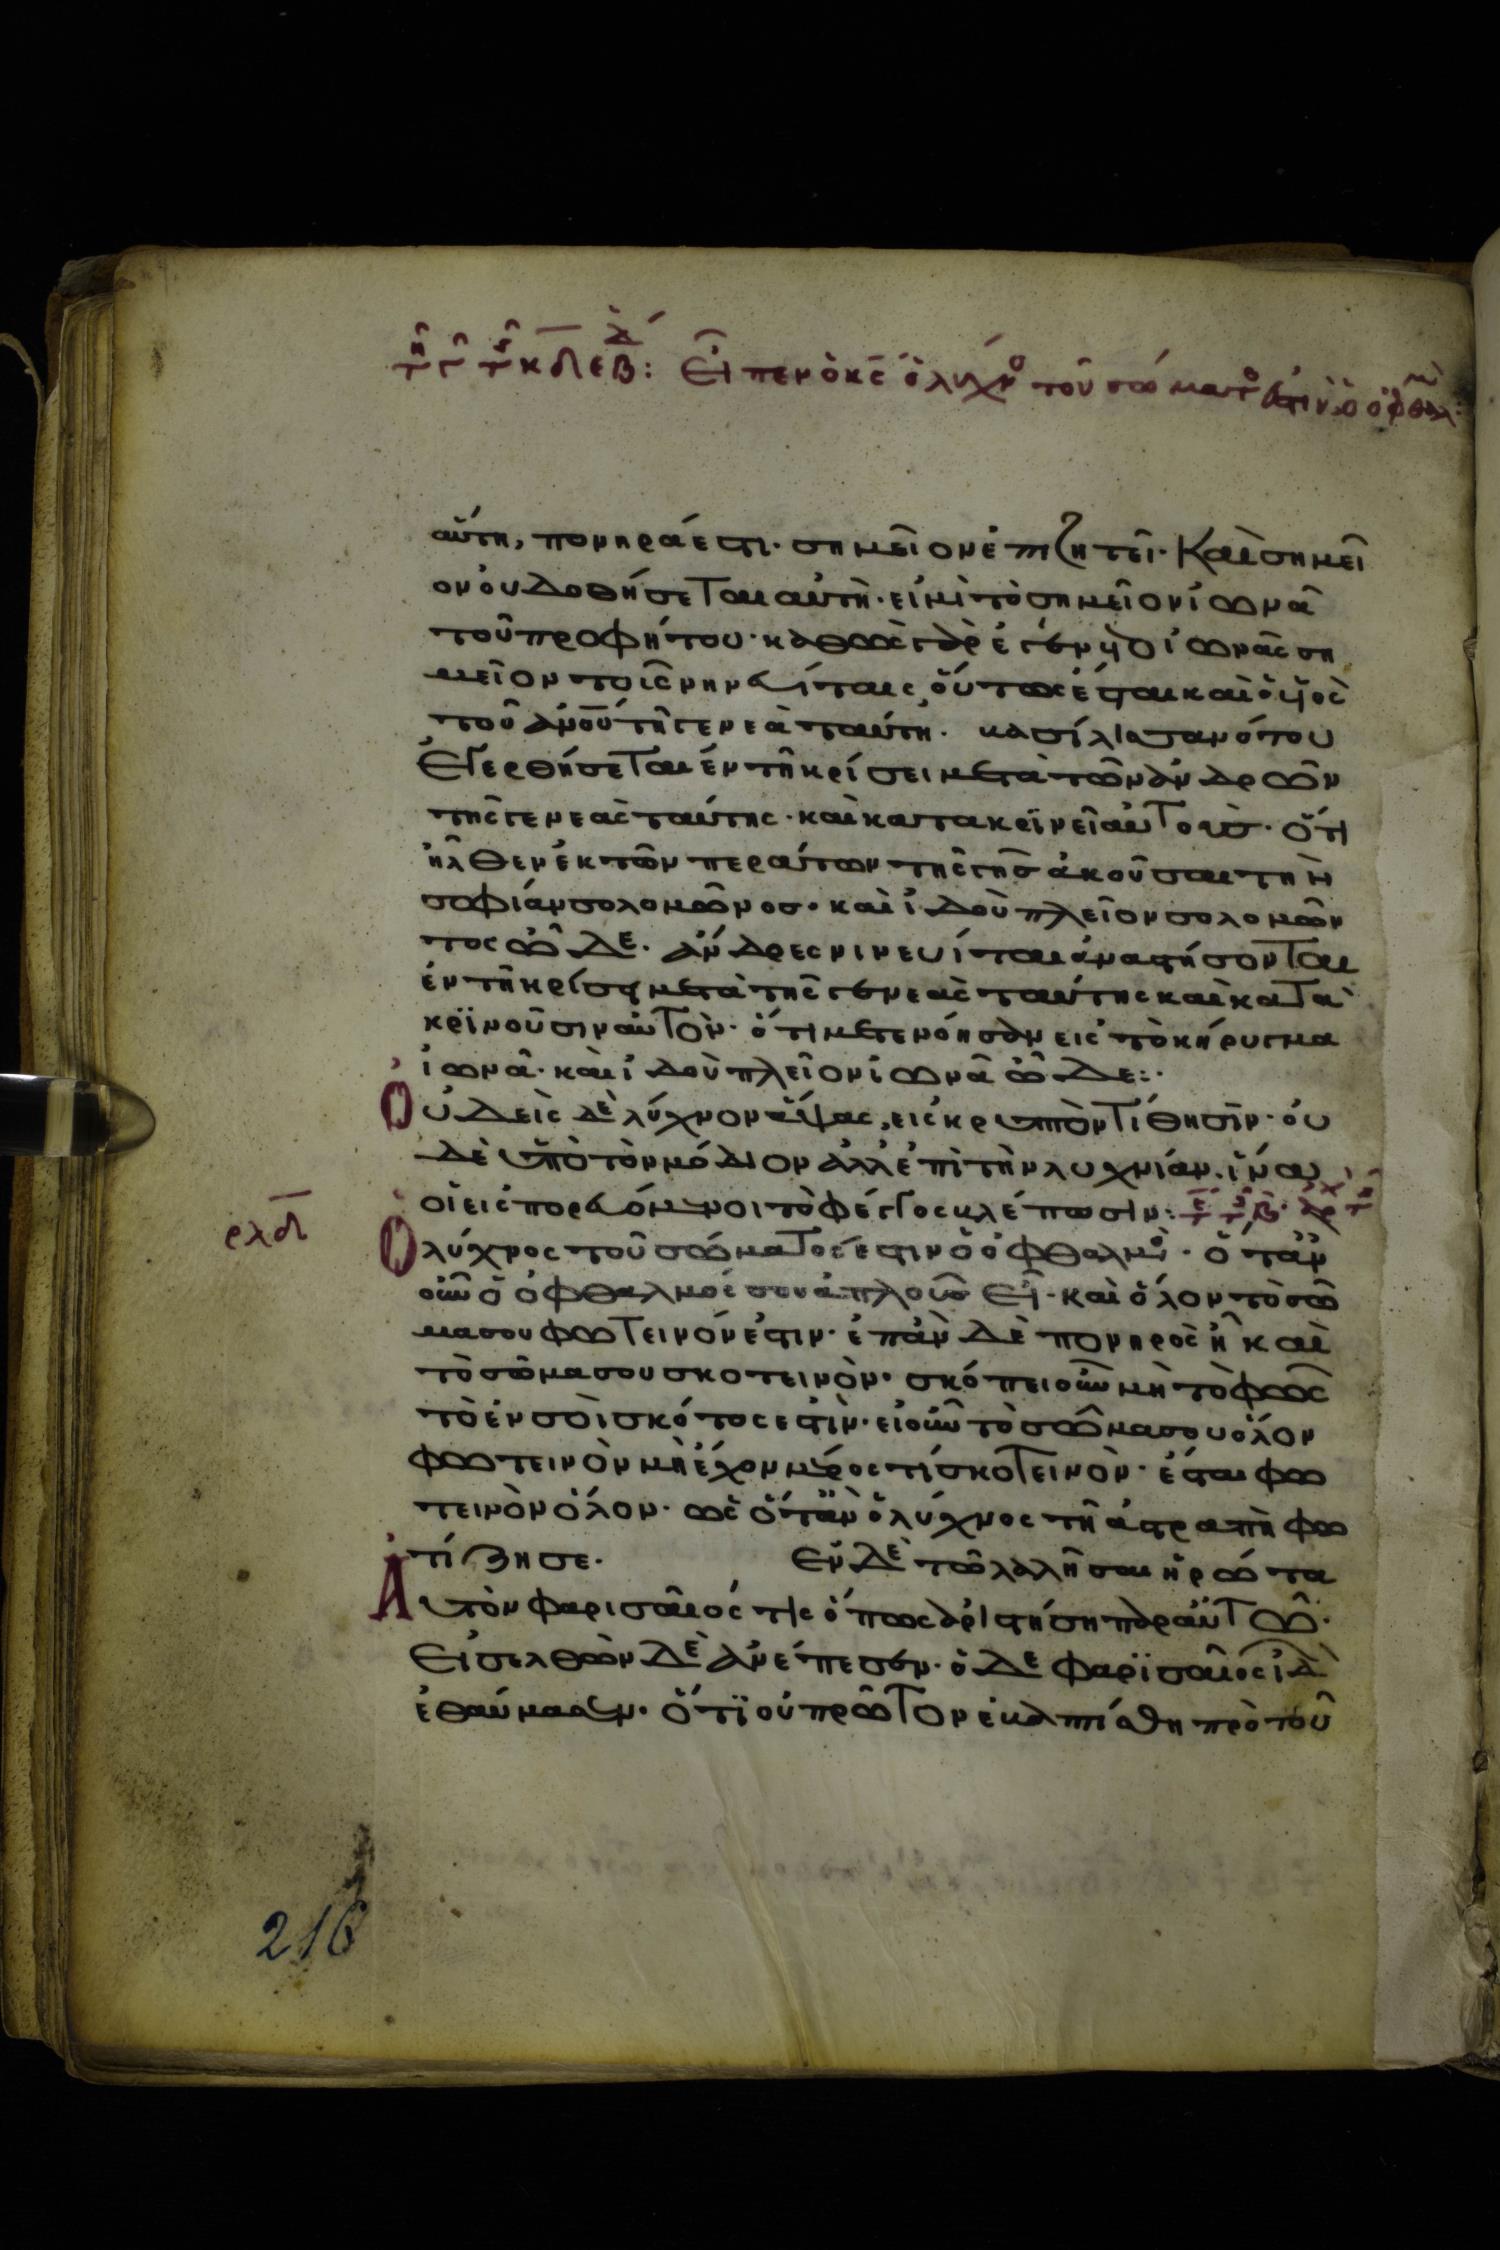 εἶπεν ὁ κς ὁ λύχνο τοῦ σώματο ἐστὶν ὁ ὀφθαλμ
αὕτη, πονηρά ἐστι· σημεῖον ἐπιζητεῖ· Καὶ σημεῖ
ον ὀυ δοθήσεται αὐτὴ· εἰ μὶ τὸ σημεῖον ἰωνᾶ
τοῦ προφήτου· καθὼς γὰρ ἐγένετο ἰωνᾶς ση
μεῖον τοῖς νηνευίταις, οὕτως ἔσται καὶ ὁ υἱὸς
τοῦ ἀνου τῆ γενεὰ ταύτη· βασίλισσα νότου
Ἐγερθήσεται ἐν τῆ κρίσει μετὰ τῶν ἀνδρῶν
τῆς γενεᾶς ταύτης· καὶ κατακρϊνεῖ αὐτοὺσ· ὅτι
ἦλθεν ἐκ τῶν περάτων τῆς γῆσ ἀκοῦσαι τὴν
σοφίαν σολομῶνοσ· καὶ ἰδοὺ πλεῖον σολομῶν
τος ὧδε· ἄνδρες νινευίται ἀναστήσονται
ἐν τῆ κρίσει μετὰ τῆς γενεᾶς ταύτης καὶ κατα
κρϊνοῦσιν αὐτὸν· ὅτι μετενόησαν εἰς τὸ κήρυγμα
ἰωνᾶ· καὶ ἰδοὺ πλεῖον ἰωνᾶ ὧδε:·
Ὀυδεὶς δὲ λύχνον ἅψας, εἰς κρυπτὸν τίθησϊν· ὀυ
δὲ ὑπὸ τὸν μόδιον ἀλλ' ἐπὶ τὴν λυχνίαν· ἵνα
οἱ εἰσπορευόμενοι τὸ φέγγος βλέπωσιν:
ρλδ
Ὁ λύχνος τοῦ σώματος ἐστιν ὁ ὀφθαλμὸ· ὅταν
οὖν ὁ ὀφθαλμός σου ἁπλοῦσ ἦ· καὶ ὅλον τὸ σῶ
μα σου φωτεινόν ἐστιν· ἐπὰν δὲ πονηρὸς ἦ καὶ
τὸ σῶμα σου σκοτεινὸν· σκόπει οὖν μὴ τὸ φῶς
τὸ ἐν σοὶ σκότος ἐστὶν· εἰ οὖν τὸ σῶμα σου ὅλον
φωτεινὸν μὴ ἔχον μέρος τί σκοτεινὸν· ἔσται φω
τεινὸν ὅλον· ὡς ὅταν ὁ λύχνος τῆ ἀστραπῆ φω
τίζη σε· Ἐν δὲ τῶ λαλῆσαι ἠρώτα
Ἀυτὸν φαρισαῖός τις ὅπως ἀριστήση παρ' αὐτῶ·
Εἰσελθὼν δὲ ἀνέπεσεν· ὁ δὲ φαρϊσαῖος ἰδ
ἐθαύμασεν· ὅτϊ οὐ πρῶτον ἐβαπτίσθη πρὸ τοῦ
216